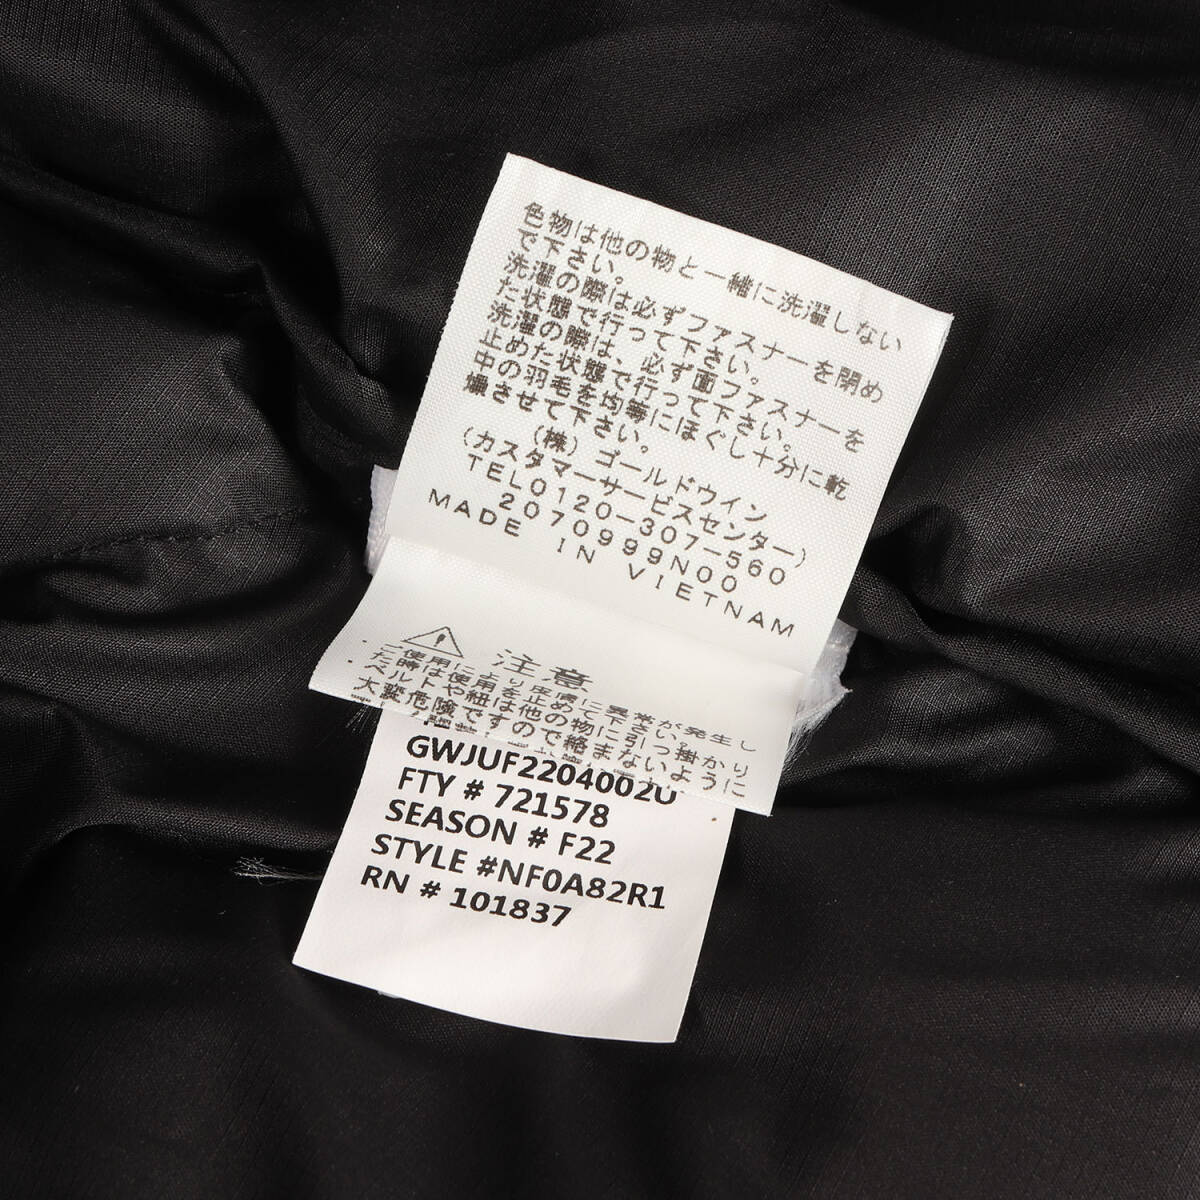 色物は他の物と一緒に洗濯しない
で下さい。
洗濯の際は必ずファスナーを閉め
た状態で行って下さい。
洗濯の際は、必ず面ファスナーを
止めた状態で行って下さい。
中の羽毛を均等にほぐし十分に乾
燥させて下さい。
(株) ゴールドウイン
(カスタマーサービスセンター)
TEL0120-307-560
2070999N00
MADE IN VIETNAM
注意
ご使用により皮膚に異常が発生し
た時は使用を止めて下さい。
ベルトや紐は他の物に引っ掛かり
大変危険ですので絡まないように
GWJUF2204002U
FTY # 721578
SEASON # F22
STYLE #NF0A82R1
RN # 101837